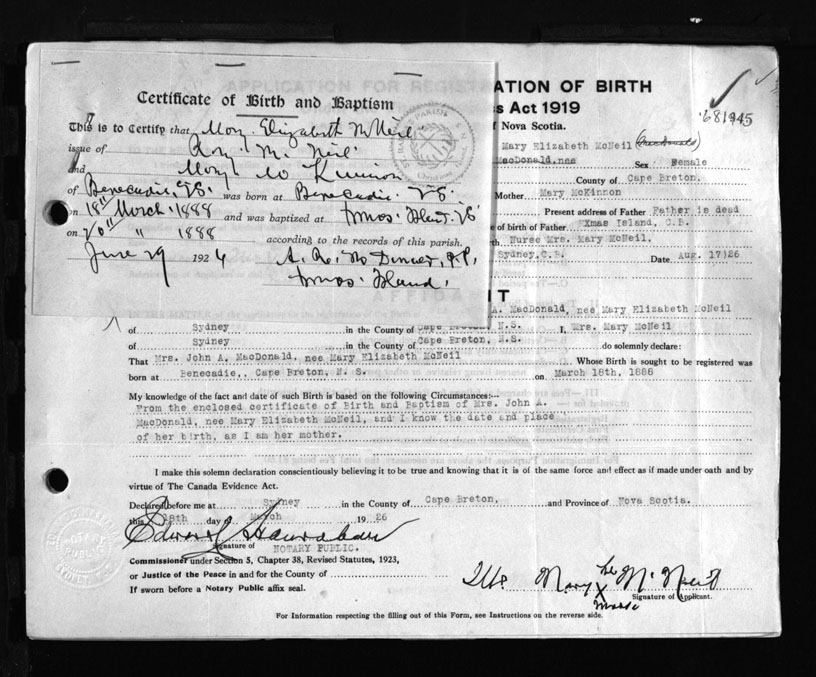 Certificate of Birth and Baptism
This is to Certify that Mary Elizabeth McNeil
issue of Rory McNeil
and Mary McKinnon
of Benecadie, N.S. was born at Benecadie N.S.
on 18th March 1888 and was baptized at Xmas Island N.S.
on 20th " 1888 according to the records of this parish.
June 29 1924
Xmas Island.
ATION OF BIRTH
s Act 1919
f Nova Scotia.
681945
Mary Elizabeth McNeil (MacDonald)
MacDonald, nee Sex Female
County of Cape Breton.
Mother Mary McKinnon
Present address of Father Father is dead
e of birth of Father Xmas Island, C.B.
th, Nurse Mrs. Mary McNeil,
Sydney, C.B. Date Aug. 17/26
IT
A. MacDonald, nee Mary Elizabeth McNeil
of Sydney in the County of Cape Breton, N.S. I, Mrs. Mary McNeil
of Sydney in the County of Cape Breton, N.S. do solemnly declare:
That Mrs. John A. MacDonald, nee Mary Elizabeth McNeil Whose Birth is sought to be registered was
born at Benecadie,, Cape Breton, N. S. on March 18th, 1888
My knowledge of the fact and date of such Birth is based on the following Circumstances:—
From the enclosed certificate of Birth and Baptism of Mrs. John A.
MacDonald, nee Mary Elizabeth McNeil, and I know the date and place
of her birth, as I am her mother.
I make this solemn declaration conscientiously believing it to be true and knowing that it is of the same force and effect as if made under oath and by
virtue of The Canada Evidence Act.
Declared before me at Sydney in the County of Cape Breton, and Province of Nova Scotia.
this 18th day of March 1926
Signature of NOTARY PUBLIC.
Commissioner under Section 5, Chapter 38, Revised Statutes, 1923,
or Justice of the Peace in and for the County of
If sworn before a Notary Public affix seal.
Mrs Mary her X mark McNeil
Signature of Applicant.
For Information respecting the filling out of this Form, see Instructions on the reverse side.